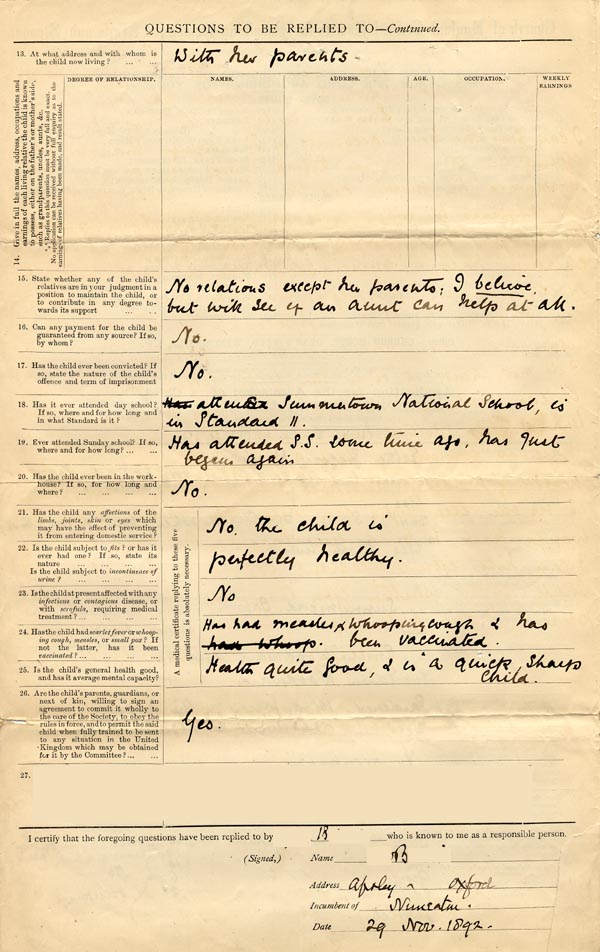 QUESTIONS TO BE REPLIED TO—Continued.
13. At what address and with whom is
the child now living? ... ...
With her parents.
14. Give in full the names, address, occupations and
earnings of each living relative the child is known
to possess, either on the father's or mother's side,
such as grandparents, uncles, aunts, &c.
*** Replies to this question must be very full and exact.
No application can be received without full enquiry as to the
earnings of relatives having been made, and result stated.
DEGREE OF RELATIONSHIP. NAMES. ADDRESS. AGE. OCCUPATION. WEEKLY
EARNINGS
15. State whether any of the child's
relatives are in your judgment in a
position to maintain the child, or
to contribute in any degree to-
wards its support ... ...
No relations except her parents; I believe,
but will see if an aunt can help at all.
16. Can any payment for the child be
guaranteed from any source? If so,
by whom? ... ... ...
No.
17. Has the child ever been convicted? If
so, state the nature of the child's
offence and term of imprisonment
No.
18. Has it ever attended day school?
If so, where and for how long and
in what Standard is it? ...
Has attended Summertown National School, is
in Standard II.
19. Ever attended Sunday school? If so,
where and for how long? ... ...
Has attended S.S. some time ago, has just
begun again
20. Has the child ever been in the work-
house? If so, for how long and
where? ... ... ... ...
No.
A medical certificate replying to these five
questions is absolutely necessary.
21. Has the child any affections of the
limbs, joints, skin or eyes which
may have the effect of preventing
it from entering domestic service?
No. the child is
perfectly healthy.
22. Is the child subject to fits? or has it
ever had one? If so, state its
nature ... ... ... ...
Is the child subject to incontinence of
urine? ... ... ... ...
No
23. Is the child at present affected with any
infectious or contagious disease, or
with scrofula, requiring medical
treatment? ... ... ... ...
24. Has the child had scarlet fever or whoop-
ing cough, measles, or small pox? If
not the latter, has it been
vaccinated? ... ... ... ...
Has had measles & whooping cough & has
had whoop. been vaccinated.
25. Is the child's general health good,
and has it average mental capacity?
Health quite good, & is a quick, sharp
child.
26. Are the child's parents, guardians, or
next of kin, willing to sign an
agreement to commit it wholly to
the care of the Society, to obey the
rules in force, and to permit the said
child when fully trained to be sent
to any situation in the United
Kingdom which may be obtained
for it by the Committee? ... ...
Yes.
27.
I certify that the foregoing questions have been replied to by B who is known to me as a responsible person.
(Signed,) Name B
Address Oxford
Incumbent of
Date 29 Nov. 1892.